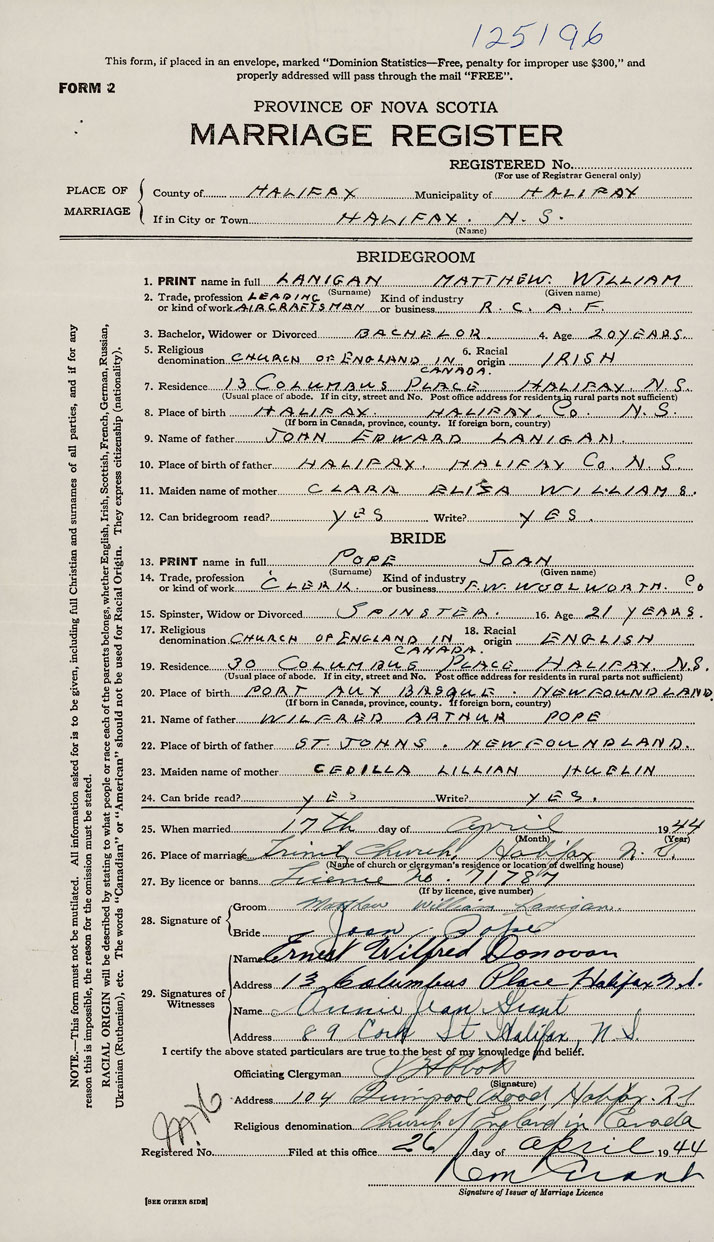 125196
This form, if placed in an envelope, marked "Dominion Statistics—Free, penalty for improper use $300," and
properly addressed will pass through the mail "FREE".
FORM 2
PROVINCE OF NOVA SCOTIA
MARRIAGE REGISTER
REGISTERED No.
(For use of Registrar General only)
PLACE OF MARRIAGE
County of HALIFAX Municipality of HALIFAX
If in City or Town HALIFAX. N.S.
(Name)
BRIDEGROOM
1. PRINT name in full LANIGAN MATTHEW WILLIAM
(Surname) (Given name)
2. Trade, profession or kind of work LEADING AIRCRAFTSMAN Kind of industry or business R.C.A.F.
3. Bachelor, Widower or Divorced BACHELOR. 4. Age 20 YEARS.
5. Religious denomination CHURCH OF ENGLAND IN CANADA. 6. Racial origin IRISH
7. Residence 13 COLUMBUS PLACE HALIFAX N.S.
(Usual place of abode. If in city, street and No. Post office address for residents in rural parts not sufficient)
8. Place of birth HALIFAX. HALIFAX. Co. N.S.
(If born in Canada, province, county. If foreign born, country)
9. Name of father JOHN EDWARD LANIGAN.
10. Place of birth of father HALIFAX. HALIFAX Co. N.S.
11. Maiden name of mother CLARA ELISA WILLIAMS.
12. Can bridegroom read? YES Write? YES.
BRIDE
13. PRINT name in full POPE JOAN
(Surname) (Given name)
14. Trade, profession or kind of work CLERK. Kind of industry or business F.W. WOOLWORTH. Co
15. Spinster, Widow or Divorced SPINSTER. 16. Age 21 YEARS.
17. Religious denomination CHURCH OF ENGLAND IN CANADA. 18. Racial origin ENGLISH
19. Residence 30 COLUMBUS PLACE HALIFAX. N.S.
(Usual place of abode. If in city, street and No. Post office address for residents in rural parts not sufficient)
20. Place of birth PORT AUX BASQUE. NEWFOUNDLAND.
(If born in Canada, province, county. If foreign born, country)
21. Name of father WILFRED ARTHUR POPE
22. Place of birth of father ST. JOHNS. NEWFOUNDLAND.
23. Maiden name of mother CEDILLA LILLIAN HUELIN
24. Can bride read? YES Write? YES.
25. When married 17th day of April 1944
(Month) (Year)
26. Place of marriage Trinity Church, Halifax N.S.
(Name of church or clergyman's residence or location of dwelling house)
27. By licence or banns Licence No. 71787
(If by licence, give number)
28. Signature of
Groom Matthew William Lanigan.
Bride Joan Pope
29. Signatures of Witnesses
Name Ernest Wilfred Donovan
Address 13 Columbus Place Halifax N.S.
Name Annie Jean Grant
Address 89 Cork St Halifax, N.S
I certify the above stated particulars are true to the best of my knowledge and belief.
Officiating Clergyman
(Signature)
Address 104 Quinpool Road, Halifax. N.S
Religious denomination Church of England in Canada
Registered No. Filed at this office 26 day of April 1944
Grant
Signature of Issuer of Marriage Licence
[SEE OTHER SIDE]
NOTE.—This form must not be mutilated. All information asked for is to be given, including full Christian and surnames of all parties, and if for any
reason this is impossible, the reason for the omission must be stated.
RACIAL ORIGIN will be described by stating to what people or race each of the parents belongs, whether English, Irish, Scottish, French, German, Russian,
Ukrainian (Ruthenian), etc. The words "Canadian" or "American" should not be used for Racial Origin. They express citizenship (nationality).